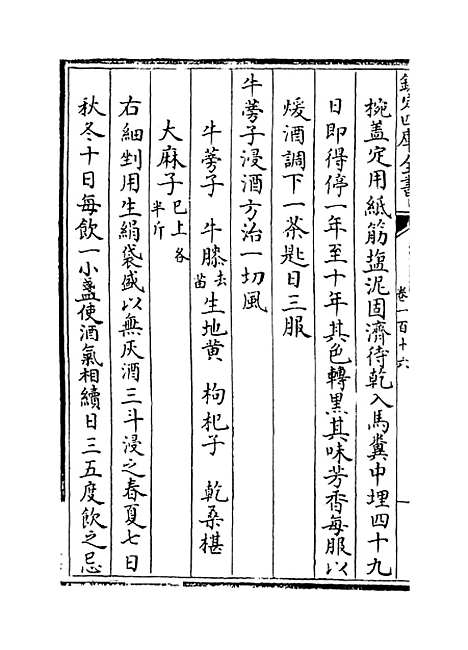 欽定四庫全書
卷一百十六
椀盖定用紙筋塩泥固濟待乾入馬糞中埋四十九
日即得停一年至十年其色轉黒其味芳香每服以
煖酒調下一茶匙日三服
牛蒡子浸酒方治一切風
牛蒡子 牛膝去苗 生地黄 枸杞子 乾桑椹
大麻子已上各半斤
右細剉用生絹袋盛以無灰酒三斗浸之春夏七日
秋冬十日每飲一小盞使酒氣相續日三五度飲之忌